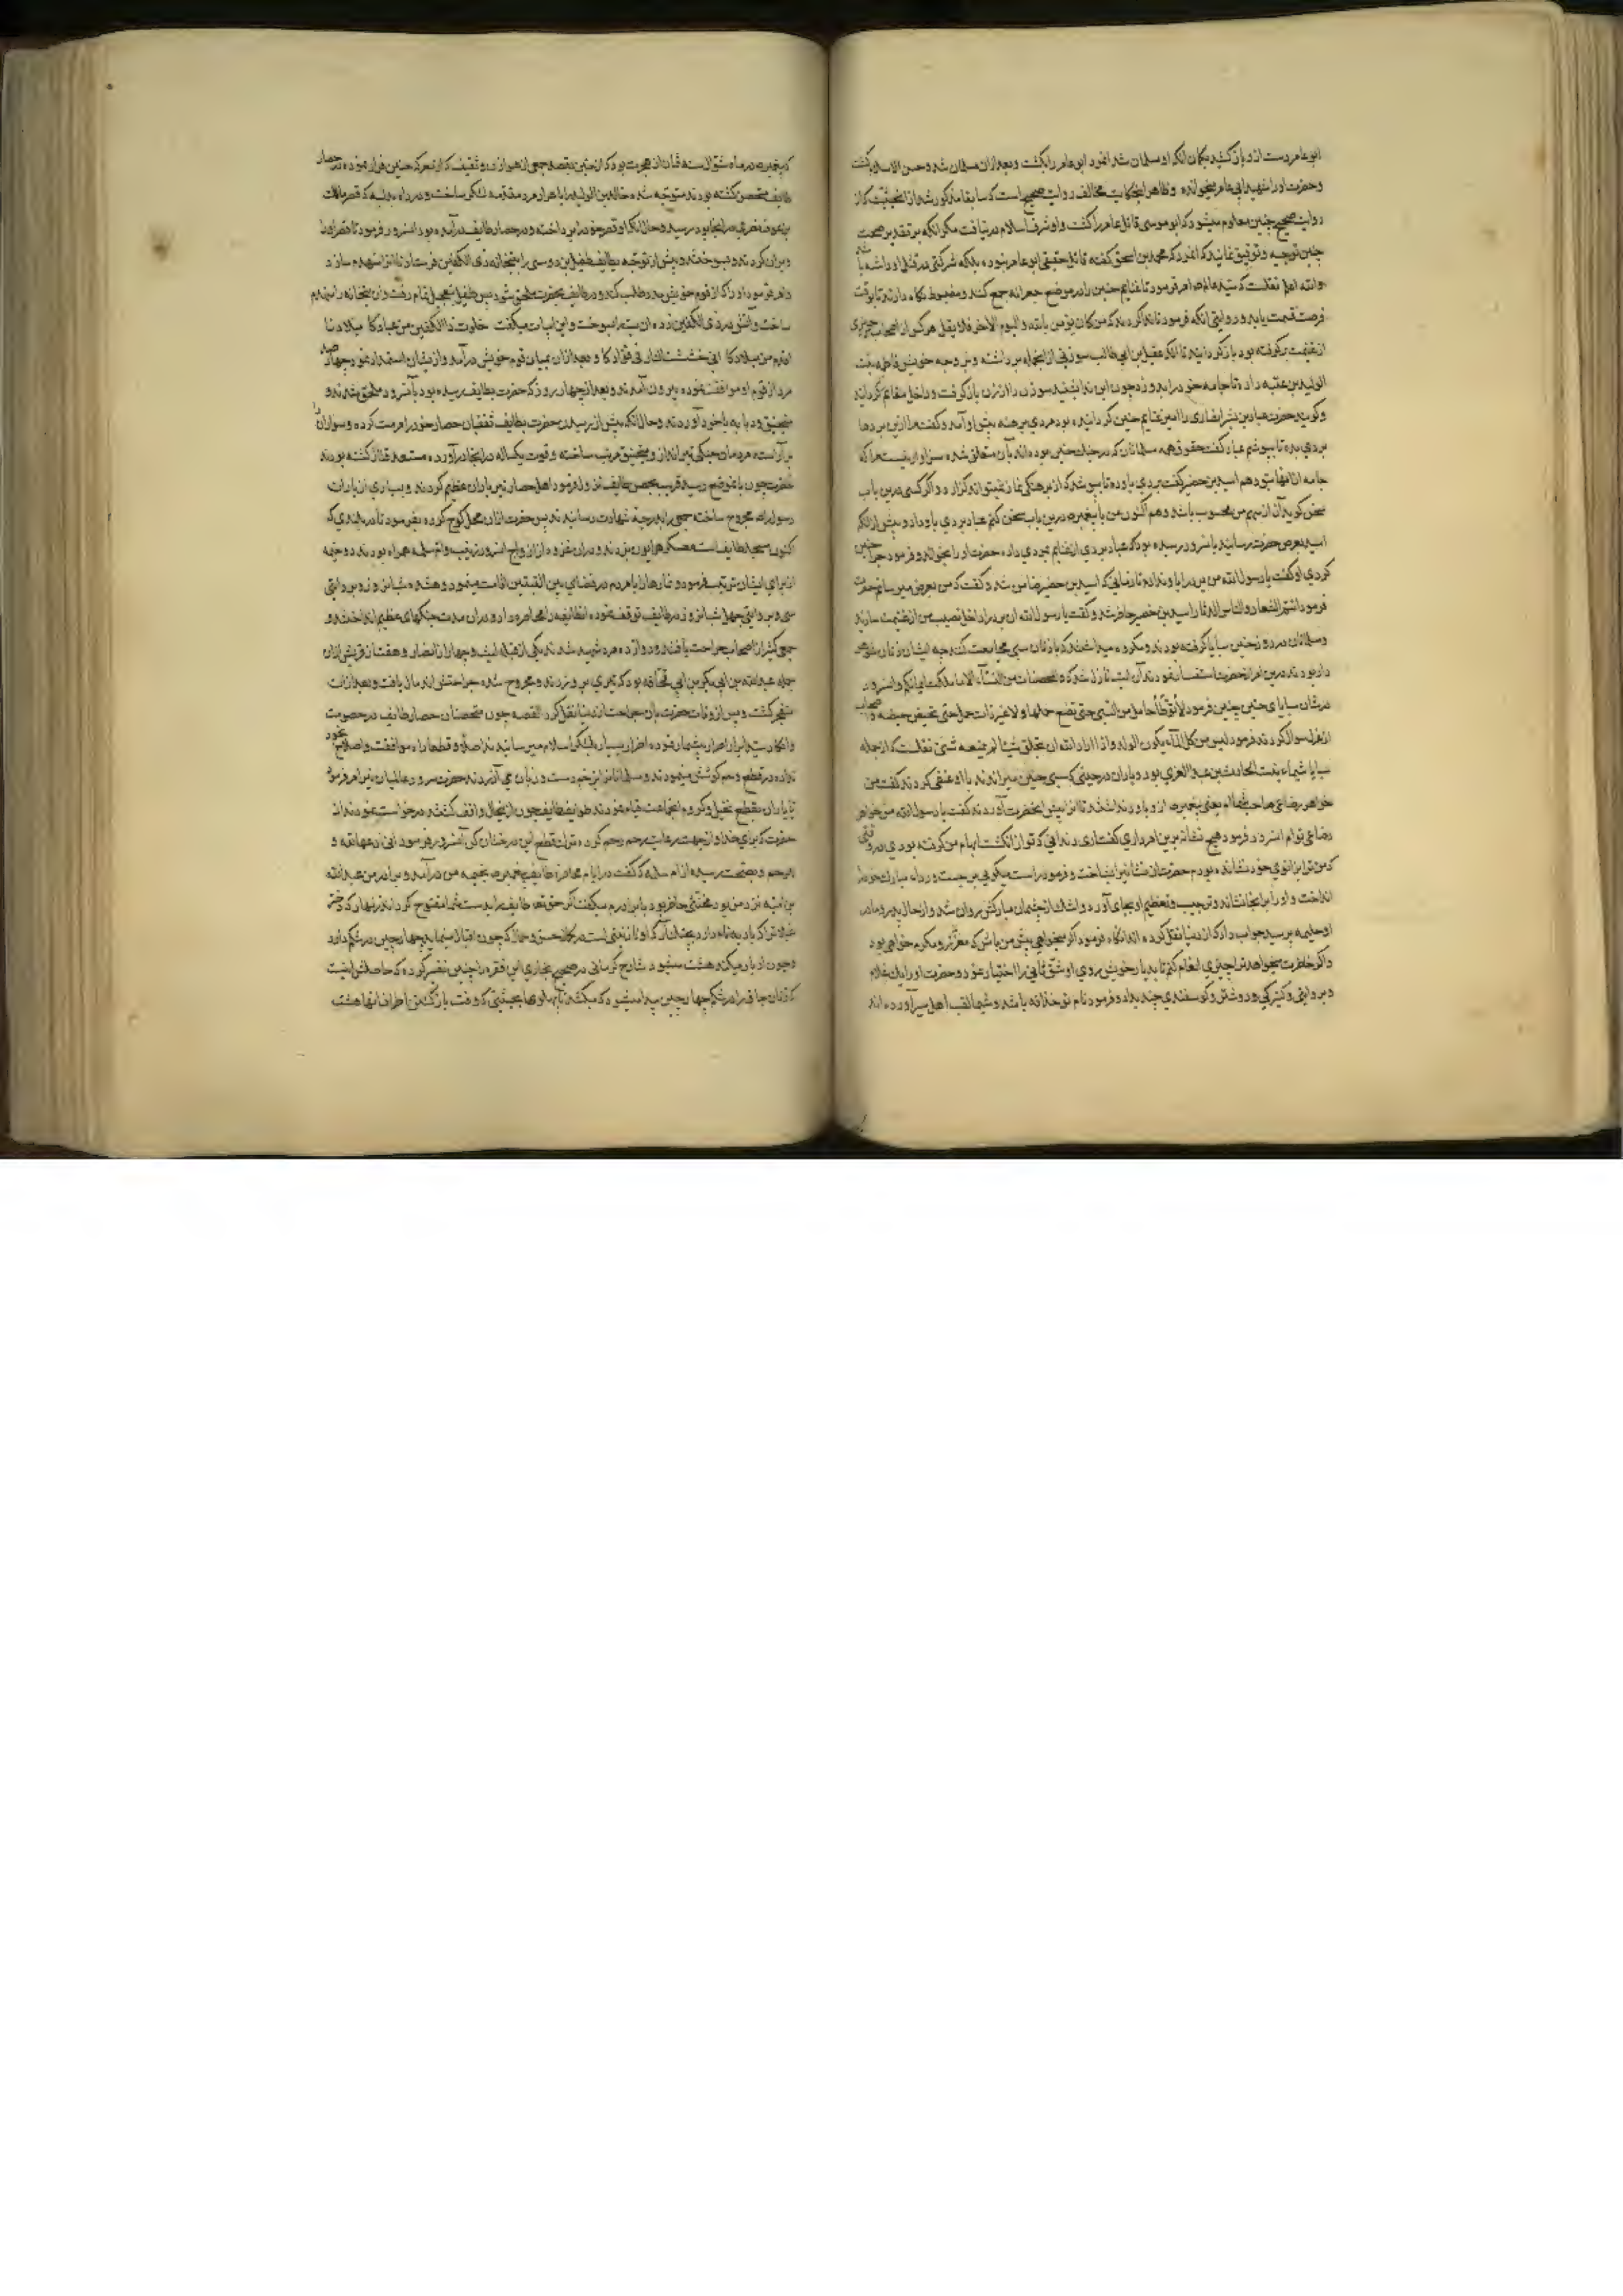 ابو عامر دست ازو باز کشید بگمان آنکه او مسلمان شد انمرد ابو عامر را بکشت و بعد ازان مسلمان شد و حسن الاسلام گشت
و حضرت او را شهید ابی عامر میخواندند و ظاهر اینحکایت مخالف روایت صحیح است که سابقا مذکور شد از انحیثیت که از
روایت صحیح چنین معلوم میشود که ابو موسی قاتل عامر را کشت و او شرف اسلام در نیافت مگر آنکه بر تقدیر صحت
چنین توجیه و توفیق نمایند که انمرد که محمد بن اسحق گفته قاتل حقیقی ابو عامر نبوده بلکه شرکتی در قتل او داشته باشد
والله اعلم نقلست که سید عالم صلعم فرمود تا غنایم حنین را در موضع جعرانه جمع کنند و مضبوط نگاه دارند تا بوقت
فرصت قسمت یابد و در روایتی آنکه فرمود تا ندا کردند که من کان یؤمن بالله و الیوم الاخر فلا یغل هر کس از اصحاب چیزی
از غنیمت برگرفته بود باز گردانید تا آنکه عقیل بن ابی طالب سوزنی از انجمله برداشته و بزوجه خویش فاطمه بنت
الولید بن عتبه داده تا جامه خود را بدوزد چون این ندا بشنید سوزن را از زن باز گرفت و داخل مغانم گردانید
و گویند حضرت عباد بن بشر انصاری را امین غنایم حنین گردانیده بود مردی برهنه پیش او آمد و گفت مرا ازین بردها
بردی بده تا بپوشم عباد گفت حقوق همه مسلمانان که در جنگ حنین بوده اند بآن متعلق شده سزاوار نیست مرا که
جامه از انها بتو دهم اسید بن حضیر گفت بردی باو ده تا بپوشد که از برهنگی نماز نمیتواند گزارد و اگر کسی درین باب
سخن گوید آن از سهم من محسوب باشد و هم اکنون من با پیغمبر ص درین باب سخن کنم عباد بردی باو داد و پیش از آنکه
اسید بعرض حضرت رسانید بانسرور رسیده بود که عباد بردی از غنایم بمردی داده حضرت او را بخواند و فرمود چرا چنین
کردی او گفت یا رسول الله من برد را باو ندادم تا زمانی که اسید بن حضیر ضامن شد و گفت که من بعرض میرسانم حضرت
فرمود انتم الشعار و الناس الدثار اسید بن حضیر حاضر شد و گفت یا رسول الله ان برد را داخل نصیب من از غنیمت سازید
و مسلمانان در روز حنین سبایا گرفته بودند و مکروه میداشتند که با زنان سبی مجامعت کنند چه ایشان زنان شوهر
دار بودند درین امر از حضرت استفسار نمودند آن آیت نازل شد که و المحصنات من النساء الا ما ملکت ایمانکم و انسرور
در شان سبایای حنین چنین فرمود لا توطأ حامل من السبی حتی تضع حملها و لا غیر ذات حمل حتی تحیض حیضه و اصحاب
از عزل سوال کردند فرمود لیس من کل الماء یکون الولد و اذا اراد الله ان یخلق شیئا لم یمنعه شئ نقلست که از جمله
سبایا شیماء بنت الحارث بن عبد العزی بود و یاران در حینی که سبی حنین میراندند با او عنفی کردند گفت من
خواهر رضاعی صاحب شماام یعنی پیغمبر ص ازو باور نداشتند تا انزا پیش انحضرت آوردند گفت یا رسول الله من خواهر
رضاعی توام انسرور فرمود هیچ نشانه برین امر داری گفت اری دندانی که تو از انگشت ابهام من گرفته بودی در وقتی
که من ترا بزانوی خود نشانده بودم حضرت ان نشانیرا بشناخت و فرمود راست میگویی برجست و رداء مبارک خود را
انداخت و او را برانجا نشاند و ترحیب و تعظیم او بجای آورد و اشک از چشمان مبارکش روان شد و از حال پدر و مادر
او حلیمه پرسید جواب داد که از دنیا نقل کرده اند انگاه فرمود اگر میخواهی پیش من باش که معزز و مکرم خواهی بود
و اگر خاطرت میخواهد ترا چیزی انعام کنم تا بدیار خویش روی او شق ثانی را اختیار نمود و حضرت او را یک غلام
و بروایتی و کنیزکی و دو شتر و گوسفندی چند بداد و فرمود نام تو خذافه باشد و شیما لقب اهل سیر آورده اند
که پیغمبر ص در ماه شوال سنه ثمان از هجرت بود که از حنین بقصد جمعی از هوازن و ثقیف که از معرکه حنین فرار نموده در حصار
طایف متحصن گشته بودند متوجه شد و خالد بن الولید را با هزار مرد مقدمه لشکر ساخت و در راه بدیه که قصر مالک
بن عوف نضری در انجا بود رسید و حال آنکه او قصر خود را پرداخته و در حصار طایف درآمده بود انسرور فرمود تا قصر او را
ویران کردند و بسوختند و پیش از توجه بطایف طفیل بن عمرو دوسی را به بتخانه ذی الکفین فرستاد تا انرا منهدم سازد
و امر فرمود او را که از قوم خویش مدد طلب کند و در طایف بحضرت ملحق شود پس طفیل بتعجیل تمام رفت و ان بتخانه را منهدم
ساخت و آتش در ذی الکفین زده ان بت را بسوخت و این ابیات میگفت یا ذا الکفین لست من عبادکا میلادنا
اقدم من میلادکا انی حششت النار فی فؤادکا و بعد ازان بمیان قوم خویش درآمد و از ایشان استمداد نمود چهار صد
مرد از قوم او موافقت نموده بیرون آمدند و بعد از چهار روز که حضرت بطایف رسیده بود بانسرور ملحق شدند و
منجنیق و دبابه با خود آوردند و حال آنکه پیش از رسیدن حضرت بطایف ثقفیان حصار خود را مرمت کرده و سواران
بر آراسته مردمان جنگی تیر انداز و منجنیق مرتب ساخته و قوت یکساله در انجا درآورده مستعد قتال گشته بودند
حضرت چون بانموضع رسید قریب بحصن طایف نزول فرمود اهل حصار تیر باران عظیم کردند و بسیاری از یاران
رسول را ص مجروح ساخته جمعی را بدرجه شهادت رسانیدند پس حضرت ازان محل کوچ کرده بفرمود تا در بلندی که
اکنون مسجد طایف است معسکر همایون بزدند و دران غزوه از ازواج انسرور زینب و ام سلمه همراه بودند دو خیمه
از برای ایشان ترتیب فرمود و نمازها را با مردم در فضای بین القبتین اقامت مینمود و هشده شبانروز و بروایتی
سی و بروایتی چهل شبانروز در طایف توقف نموده انطایفه را محاصره دارد و دران مدت جنگهای عظیم انداختند و
جمع کثیر از اصحاب جراحت یافتند و دوازده مرد شهید شدند یکی از قبیله لیث و چهار از انصار و هفت از قریش ازان
جمله عبد الله بن ابی بکر بن ابی قحافه بود که تیری برو زدند و مجروح شد جراحتش اندمال یافت و بعد ازان
منفجر گشت و پس از وفات حضرت بان جراحت از دنیا نقل کرد القصه چون متحصنان حصار طایف در خصومت
و انکار سید ابرار اصرار بیشمار نموده اضرار بسیار بلشکر اسلام میرسانیدند اصلا و قطعا راه موافقت و اصلاح بخود
نداده در قطع رحم کوشش مینمودند و مسلمانانرا بزخم دست و زبان می آزردند حضرت سرور عالمیان نیز امر فرمود
تا یاران بقطع نخیل و کروم انجماعت قیام نمودند طوایف طایف چون ازینحال واقف گشتند درخواست نمودند از
حضرت که برای خدا و از جهت رعایت رحم رحم کرده ترک قطع این درختان کن انسرور فرمود انی ادعها لله و
للرحم و بصحت رسیده از ام سلمه که گفت در ایام محاصره طایف پیغمبر ص بخیمه من درآمد و برادر من عبد الله
بن امیه نزد من بود مخنثی حاضر بود با برادرم میگفت اگر حق تعالی طایف را بدست شما مفتوح گرداند زینهار که دختر
غیلان را که بادیه نام دارد بچنگ آر که او نازنینی است در کمال حسن و جمال که چون اقبال مینماید چهار چین در شکم دارد
و چون ادبار میکند هشت میشود شارح کرمانی در صحیح بخاری این فقره را چنین تفسیر کرده که حاصلش اینست
که زنان چاق را در شکم چهار چین پیدا میشود که میکشد تا پهلوها بحیثیتی که وقت بازگشتن اطراف انها هشت